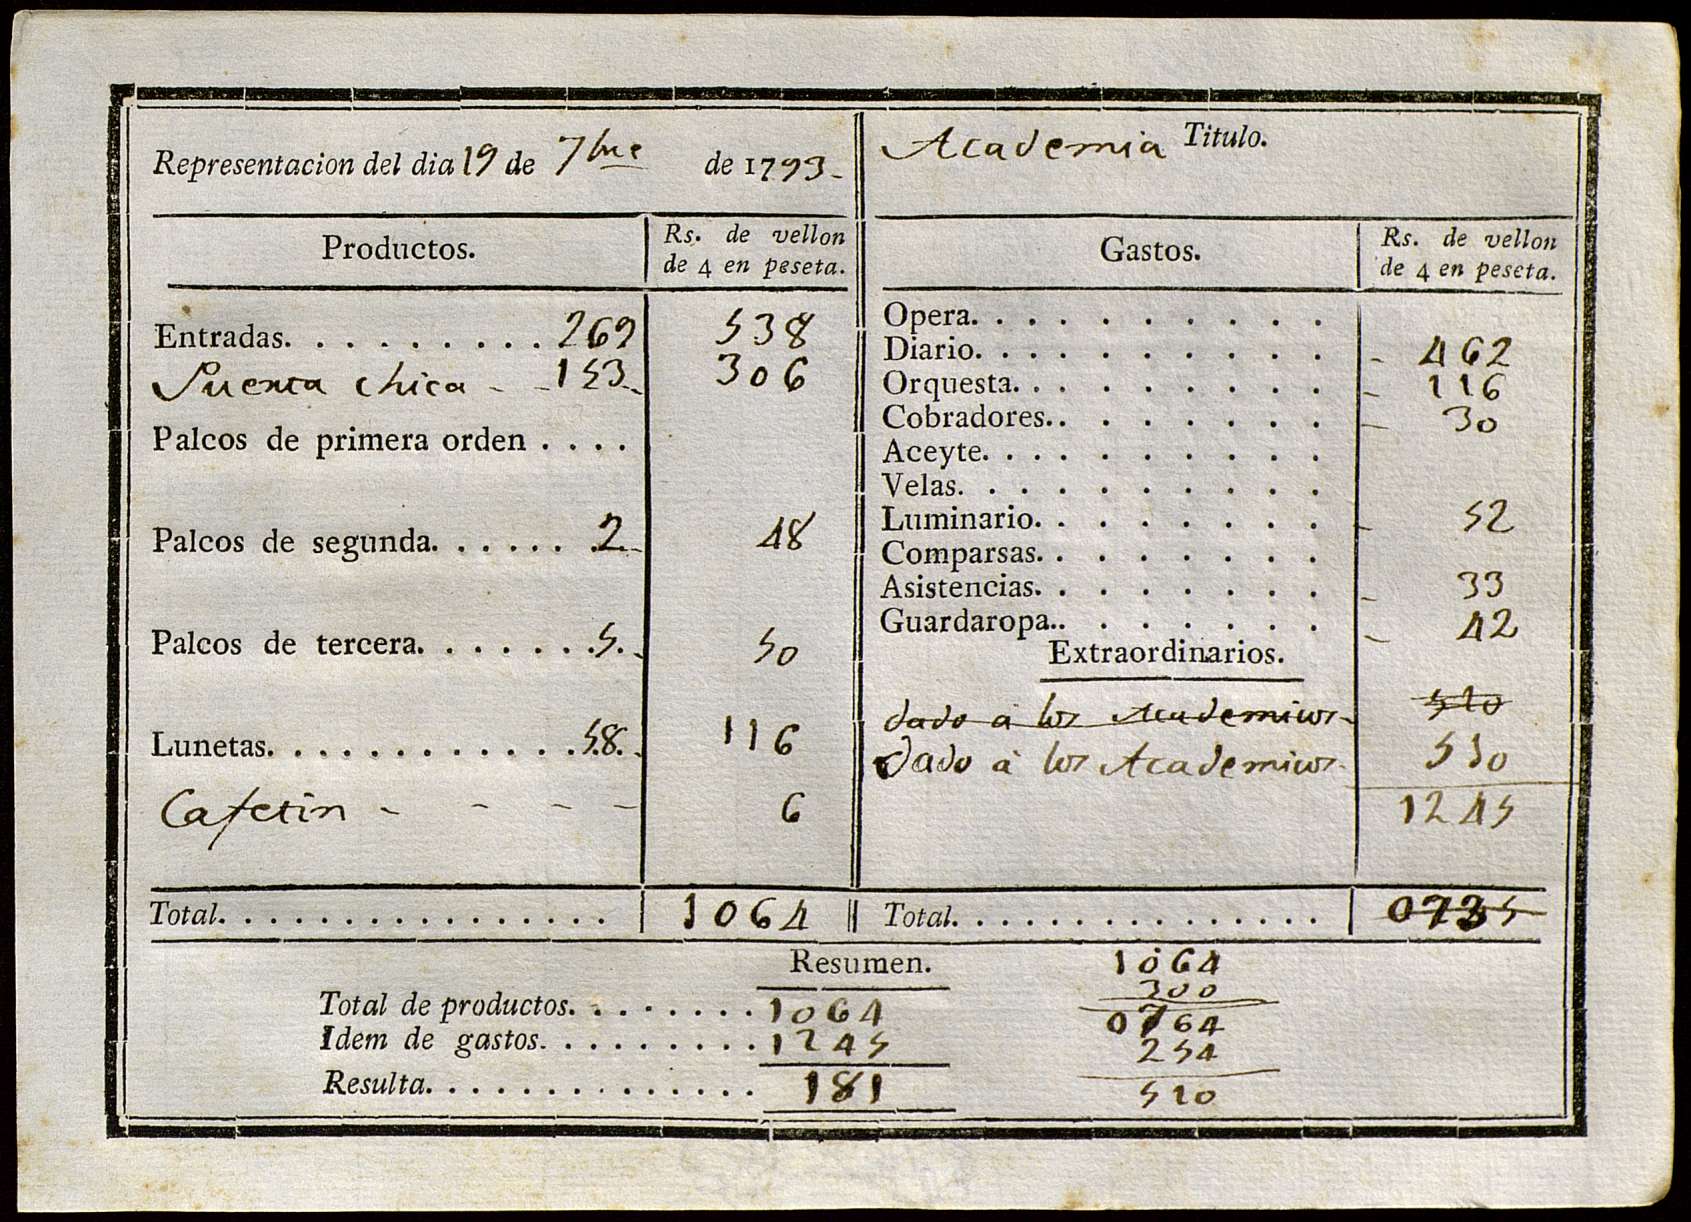 Representacion del dia 19 de 7bre de 1793.
Productos. Rs. de vellon
de 4 en peseta.
Entradas. . . . . . . . . . 269 538
Puerta chica - - 153 - 306
Palcos de primera orden . . . .
Palcos de segunda. . . . . . 2 - 48
Palcos de tercera. . . . . . . 5 - 50
Lunetas. . . . . . . . . . . . 58 - 116
Cafetin - - - - 6
Total. . . . . . . . . . . . . . . . 1064
Academia Titulo.
Gastos. Rs. de vellon
de 4 en peseta.
Opera. . . . . . . . . .
Diario. . . . . . . . . . - 462
Orquesta. . . . . . . . . - 116
Cobradores. . . . . . . . - 30
Aceyte. . . . . . . . . .
Velas. . . . . . . . . .
Luminario. . . . . . . . - 52
Comparsas. . . . . . . .
Asistencias. . . . . . . . - 33
Guardaropa. . . . . . . . - 42
Extraordinarios.
dado à los Academicos - 510
Dado à los Academicos - 510
1245
Total. . . . . . . . . . . . . . . 0735
Resumen.
Total de productos. . . . . . . . 1064
Idem de gastos. . . . . . . . . 1245
Resulta. . . . . . . . . . . . . . 181
1064
300
0764
254
510